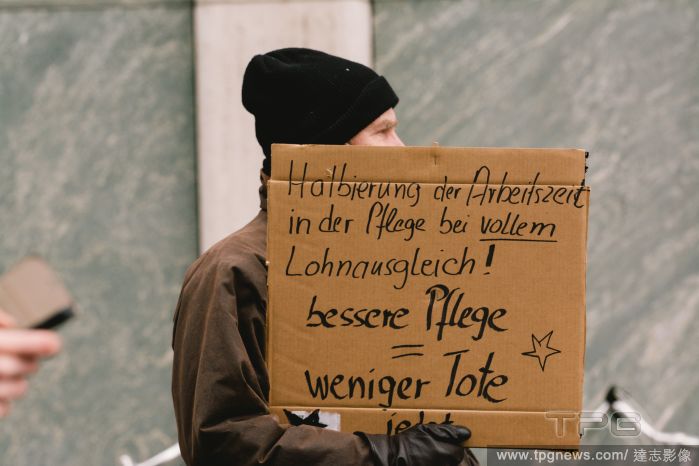 Halbierung der Arbeitszeit
in der Pflege bei vollem
Lohnausgleich!
bessere Pflege
=
weniger Tote
TPG
www.tpgnews.com/ 達志影像